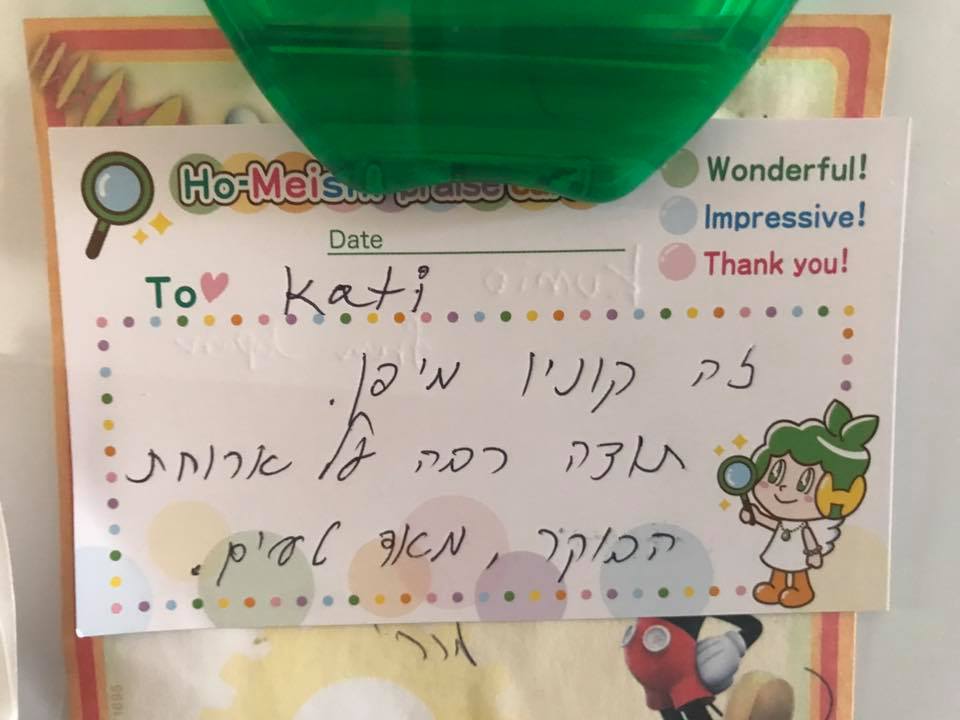 Ho-Meishi praise
Wonderful!
Impressive!
Thank you!
Date
To Kati
זה קוניו מיפן.
תודה רבה על ארוחת
הבוקר, מאד טעים.